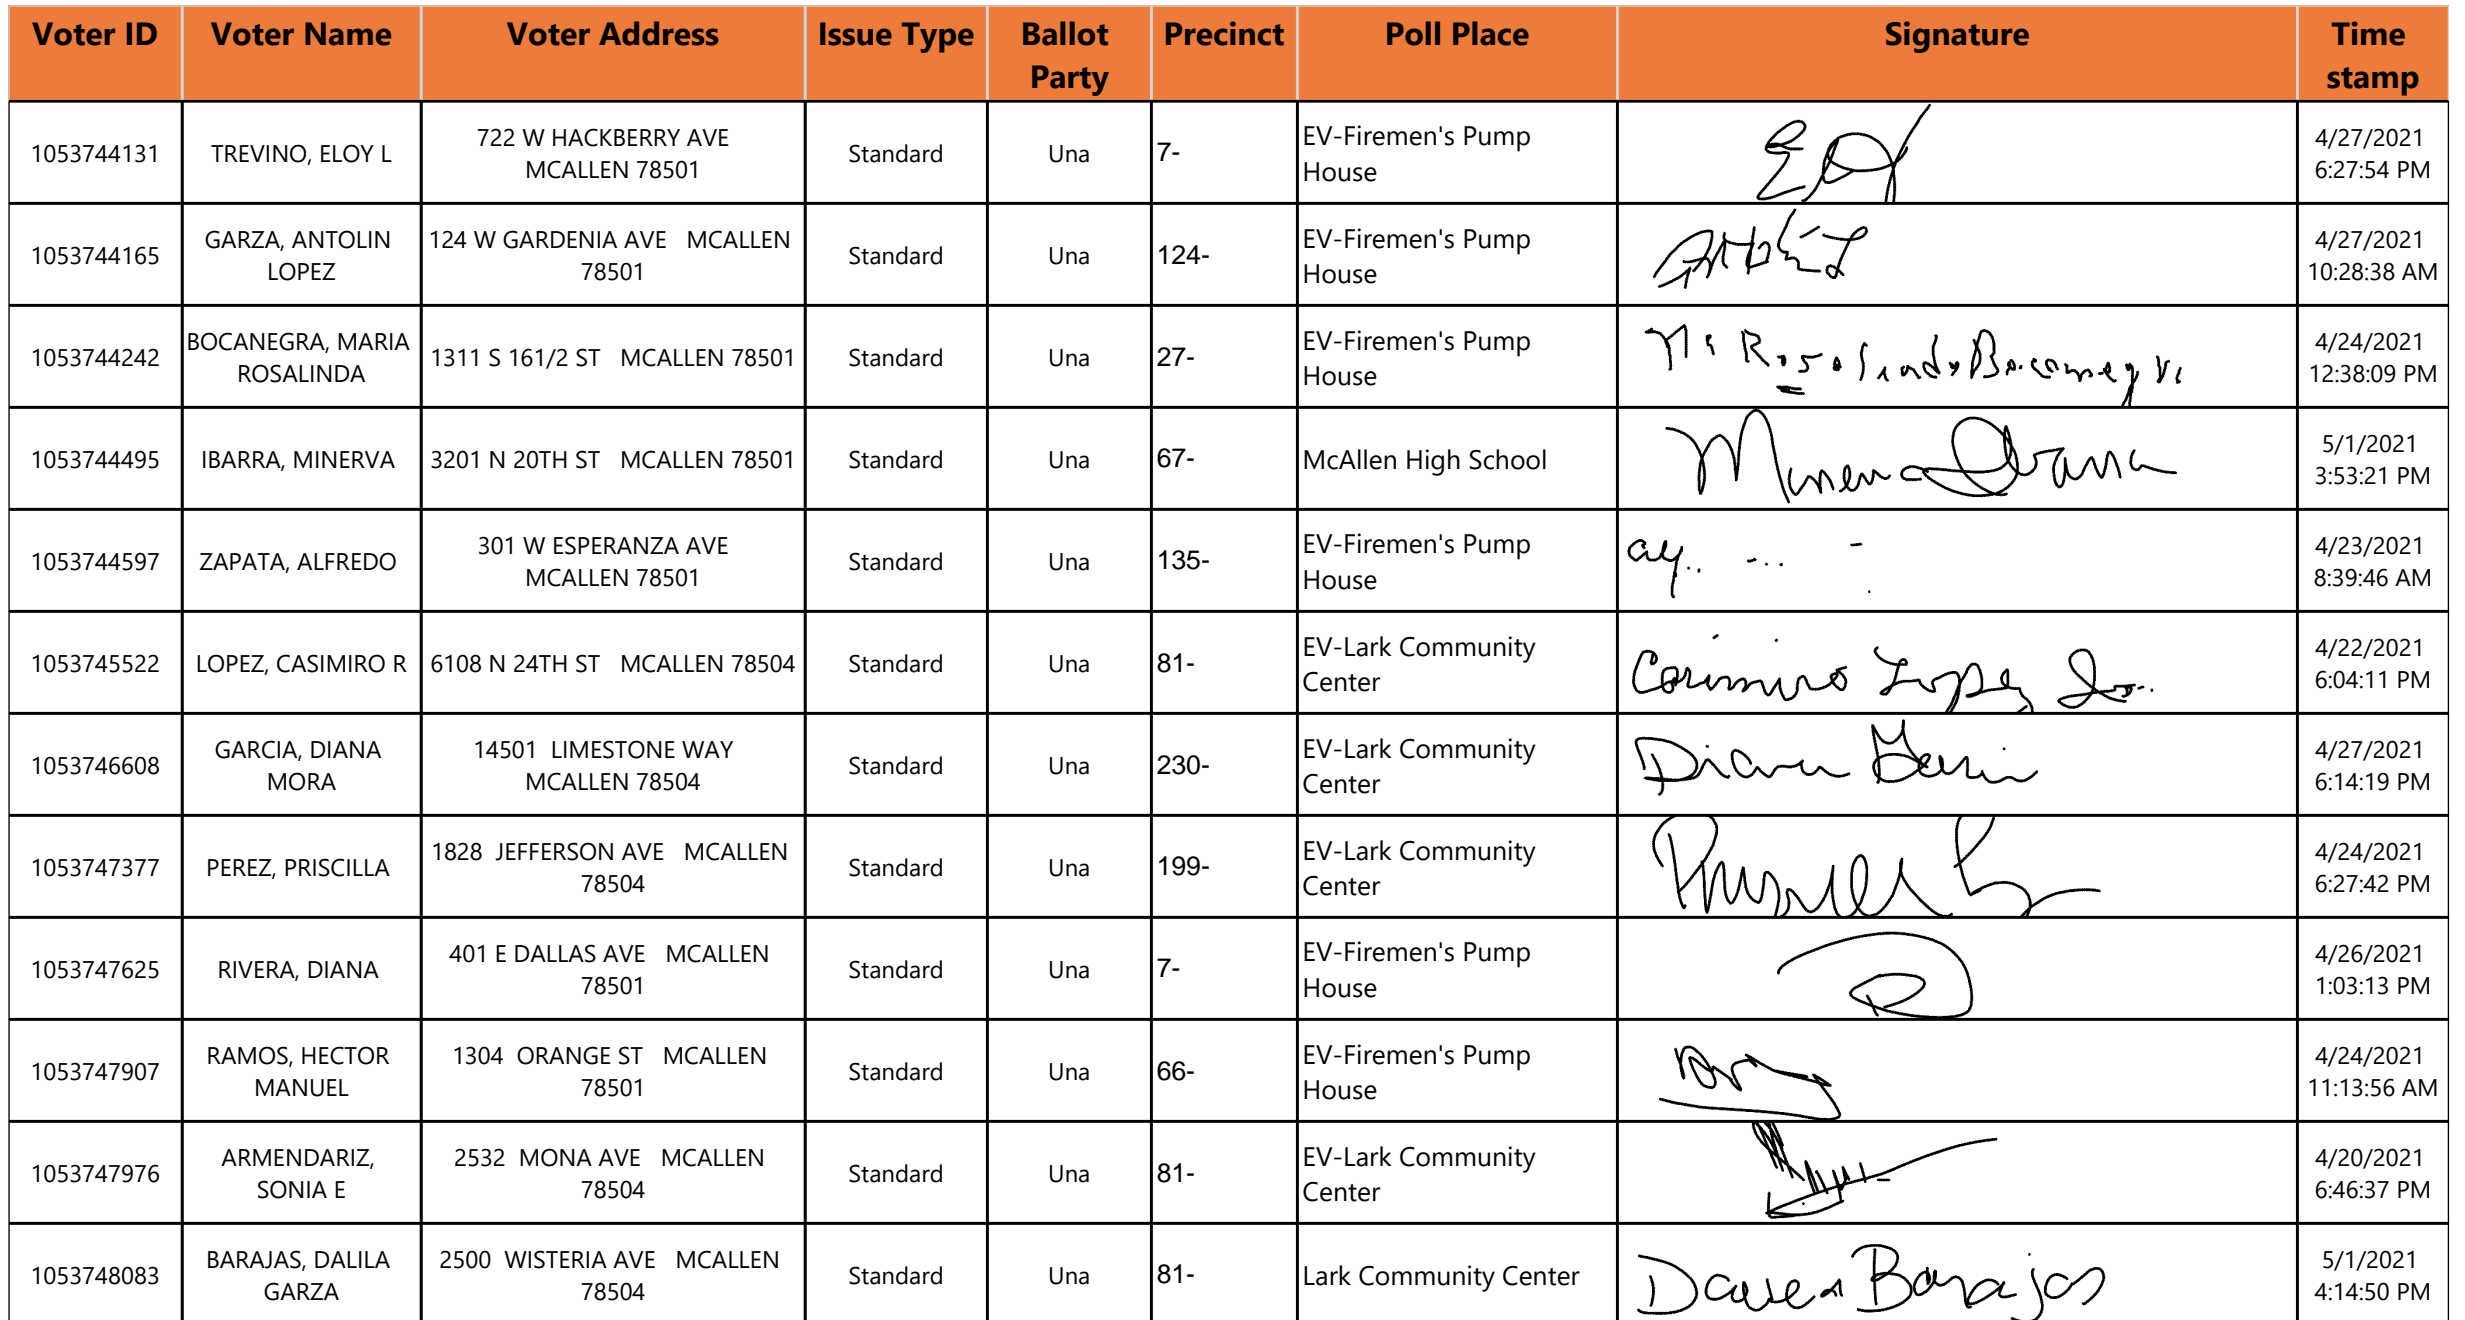 Voter ID Voter Name Voter Address Issue Type Ballot Party Precinct Poll Place Signature Time stamp
1053744131 TREVINO, ELOY L 722 W HACKBERRY AVE MCALLEN 78501 Standard Una 7- EV-Firemen's Pump House 4/27/2021 6:27:54 PM
1053744165 GARZA, ANTOLIN LOPEZ 124 W GARDENIA AVE MCALLEN 78501 Standard Una 124- EV-Firemen's Pump House 4/27/2021 10:28:38 AM
1053744242 BOCANEGRA, MARIA ROSALINDA 1311 S 161/2 ST MCALLEN 78501 Standard Una 27- EV-Firemen's Pump House Ma Rosalinda Bocanegra 4/24/2021 12:38:09 PM
1053744495 IBARRA, MINERVA 3201 N 20TH ST MCALLEN 78501 Standard Una 67- McAllen High School Minerva Ibarra 5/1/2021 3:53:21 PM
1053744597 ZAPATA, ALFREDO 301 W ESPERANZA AVE MCALLEN 78501 Standard Una 135- EV-Firemen's Pump House 4/23/2021 8:39:46 AM
1053745522 LOPEZ, CASIMIRO R 6108 N 24TH ST MCALLEN 78504 Standard Una 81- EV-Lark Community Center Casimiro Lopez 4/22/2021 6:04:11 PM
1053746608 GARCIA, DIANA MORA 14501 LIMESTONE WAY MCALLEN 78504 Standard Una 230- EV-Lark Community Center Diana Garcia 4/27/2021 6:14:19 PM
1053747377 PEREZ, PRISCILLA 1828 JEFFERSON AVE MCALLEN 78504 Standard Una 199- EV-Lark Community Center 4/24/2021 6:27:42 PM
1053747625 RIVERA, DIANA 401 E DALLAS AVE MCALLEN 78501 Standard Una 7- EV-Firemen's Pump House 4/26/2021 1:03:13 PM
1053747907 RAMOS, HECTOR MANUEL 1304 ORANGE ST MCALLEN 78501 Standard Una 66- EV-Firemen's Pump House 4/24/2021 11:13:56 AM
1053747976 ARMENDARIZ, SONIA E 2532 MONA AVE MCALLEN 78504 Standard Una 81- EV-Lark Community Center 4/20/2021 6:46:37 PM
1053748083 BARAJAS, DALILA GARZA 2500 WISTERIA AVE MCALLEN 78504 Standard Una 81- Lark Community Center Dalila Barajas 5/1/2021 4:14:50 PM